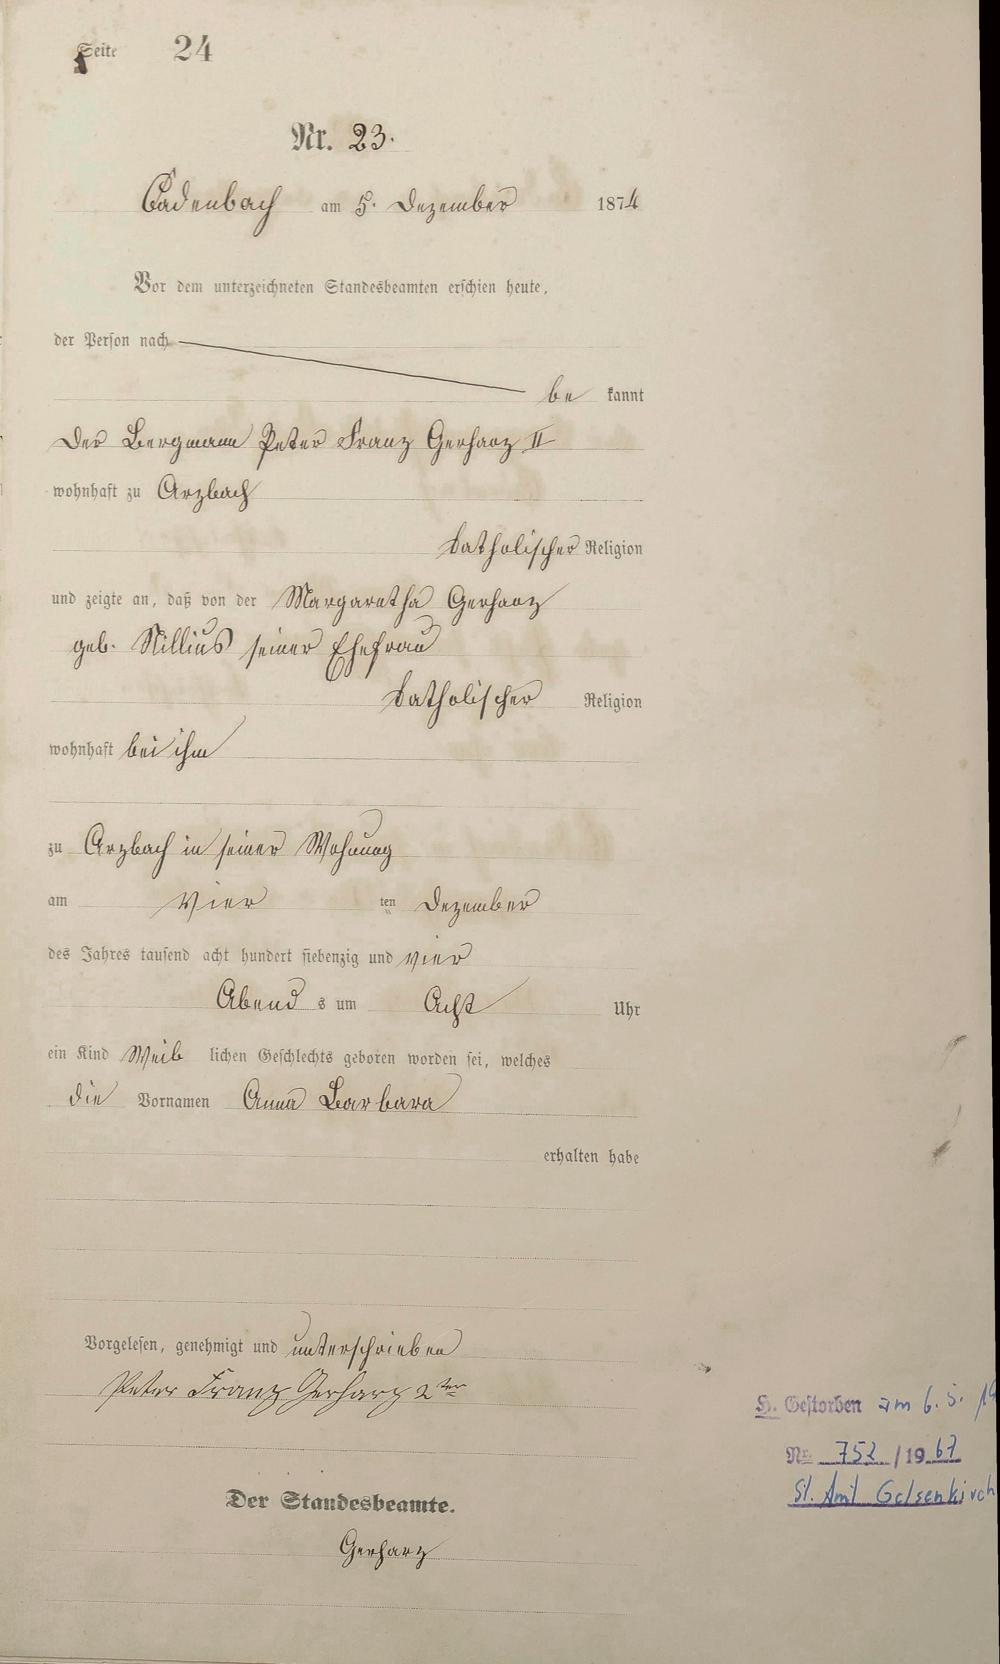 Seite 24
Nr. 23.
Cadenbach am 5. Dezember 1874
Vor dem unterzeichneten Standesbeamten erschien heute,
der Person nach
be kannt
Der Bergmann Peter Franz Gerharz II
wohnhaft zu Arzbach
katholischer Religion
und zeigte an, daß von der Margaretha Gerharz
geb. Nillius seiner Ehefrau
katholischer Religion
wohnhaft bei ihm
zu Arzbach in seiner Wohnung
am Vier ten Dezember
des Jahres tausend acht hundert siebenzig und vier
Abend s um Acht Uhr
ein Kind Weib lichen Geschlechts geboren worden sei, welches
die Vornamen Anna Barbara
erhalten habe
Vorgelesen, genehmigt und unterschrieben
Peter Franz Gerharz 2ter
Der Standesbeamte.
Gerharz
H. Gestorben am 6. 5. 19
Nr. 752 / 19 67
St. Amt Gelsenkirch